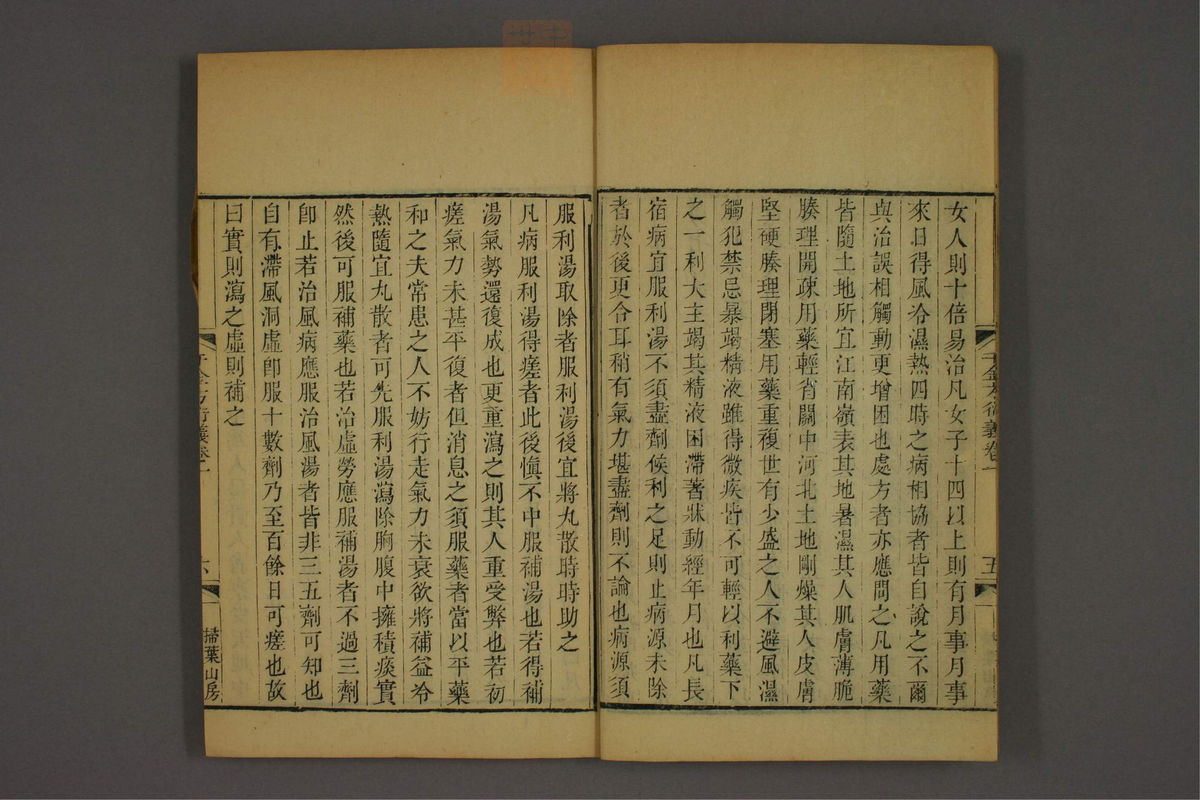 千金方衍義卷一
五
女人則十倍易治凡女子十四以上則有月事月事
來日得風冷濕熱四時之病相協者皆自說之不爾
與治誤相觸動更增困也處方者亦應問之凡用藥
皆隨土地所宜江南嶺表其地暑濕其人肌膚薄脆
腠理開疎用藥輕省關中河北土地剛燥其人皮膚
堅硬腠理閉塞用藥重複世有少盛之人不避風濕
觸犯禁忌暴竭精液雖得微疾皆不可輕以利藥下
之一利大主竭其精液困滯著牀動經年月也凡長
宿病宜服利湯不須盡劑候利之足則止病源未除
者於後更合耳稍有氣力堪盡劑則不論也病源須
服利湯取除者服利湯後宜將丸散時時助之
凡病服利湯得瘥者此後慎不中服補湯也若得補
湯氣勢還復成也更重瀉之則其人重受弊也若初
瘥氣力未甚平復者但消息之須服藥者當以平藥
和之夫常患之人不妨行走氣力未衰欲將補益冷
熱隨宜丸散者可先服利湯瀉除胸腹中擁積痰實
然後可服補藥也若治虛勞應服補湯者不過三劑
卽止若治風病應服治風湯者皆非三五劑可知也
自有滯風洞虛卽服十數劑乃至百餘日可瘥也故
曰實則瀉之虛則補之
千金方衍義卷一
六
掃葉山房